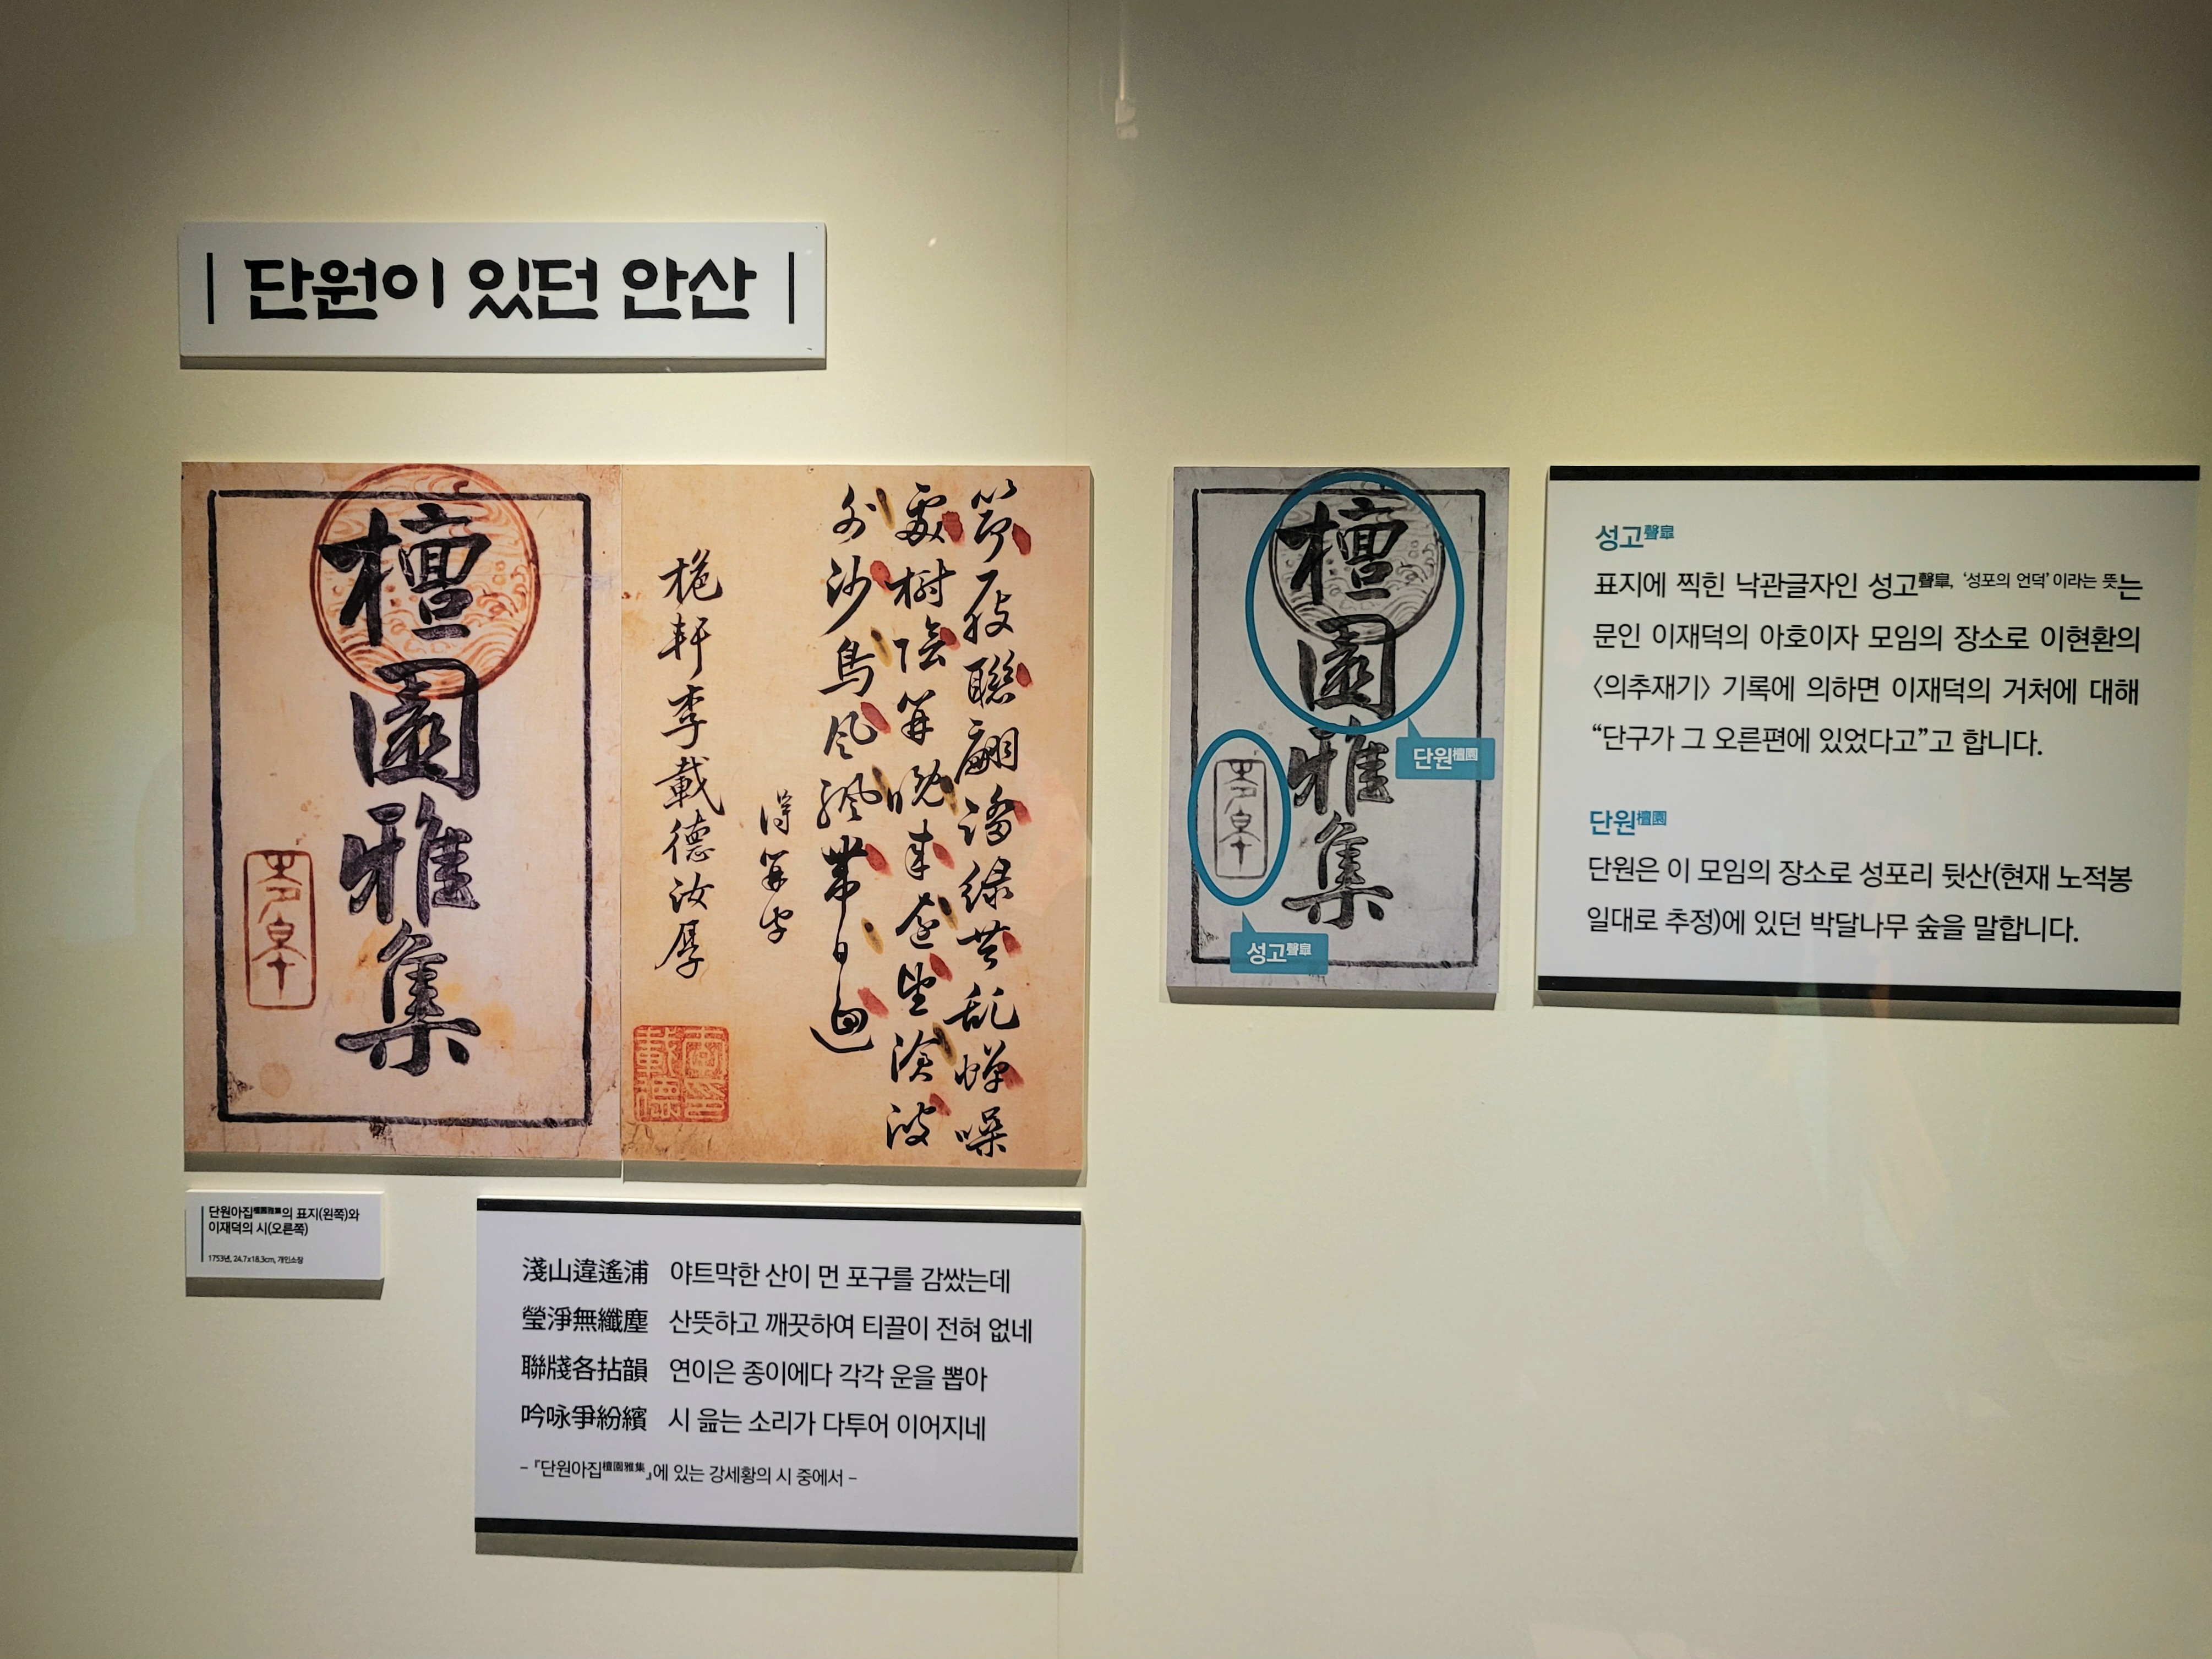 단원이 있던 안산
檀園雅集
聲皐
笻屐聯翩
綠
亂蟬噪
處樹陰
晩來
坐
波
外沙鳥
風
帶
日
得
字
李載德汝厚
檀園雅集
단원檀園
성고聲皐
성고聲皐
표지에 찍힌 낙관글자인 성고聲皐, ‘성포의 언덕’이라는 뜻는
문인 이재덕의 아호이자 모임의 장소로 이현환의
〈의추재기〉 기록에 의하면 이재덕의 거처에 대해
“단구가 그 오른편에 있었다고”고 합니다.
단원檀園
단원은 이 모임의 장소로 성포리 뒷산(현재 노적봉
일대로 추정)에 있던 박달나무 숲을 말합니다.
단원아집檀園雅集의 표지(왼쪽)와
이재덕의 시(오른쪽)
1753년, 24.7x18.3cm, 개인소장
淺山違遙浦 야트막한 산이 먼 포구를 감쌌는데
瑩淨無纖塵 산뜻하고 깨끗하여 티끌이 전혀 없네
聯牋各拈韻 연이은 종이에다 각각 운을 뽑아
吟咏爭紛繽 시 읊는 소리가 다투어 이어지네
– 『단원아집檀園雅集』에 있는 강세황의 시 중에서 –